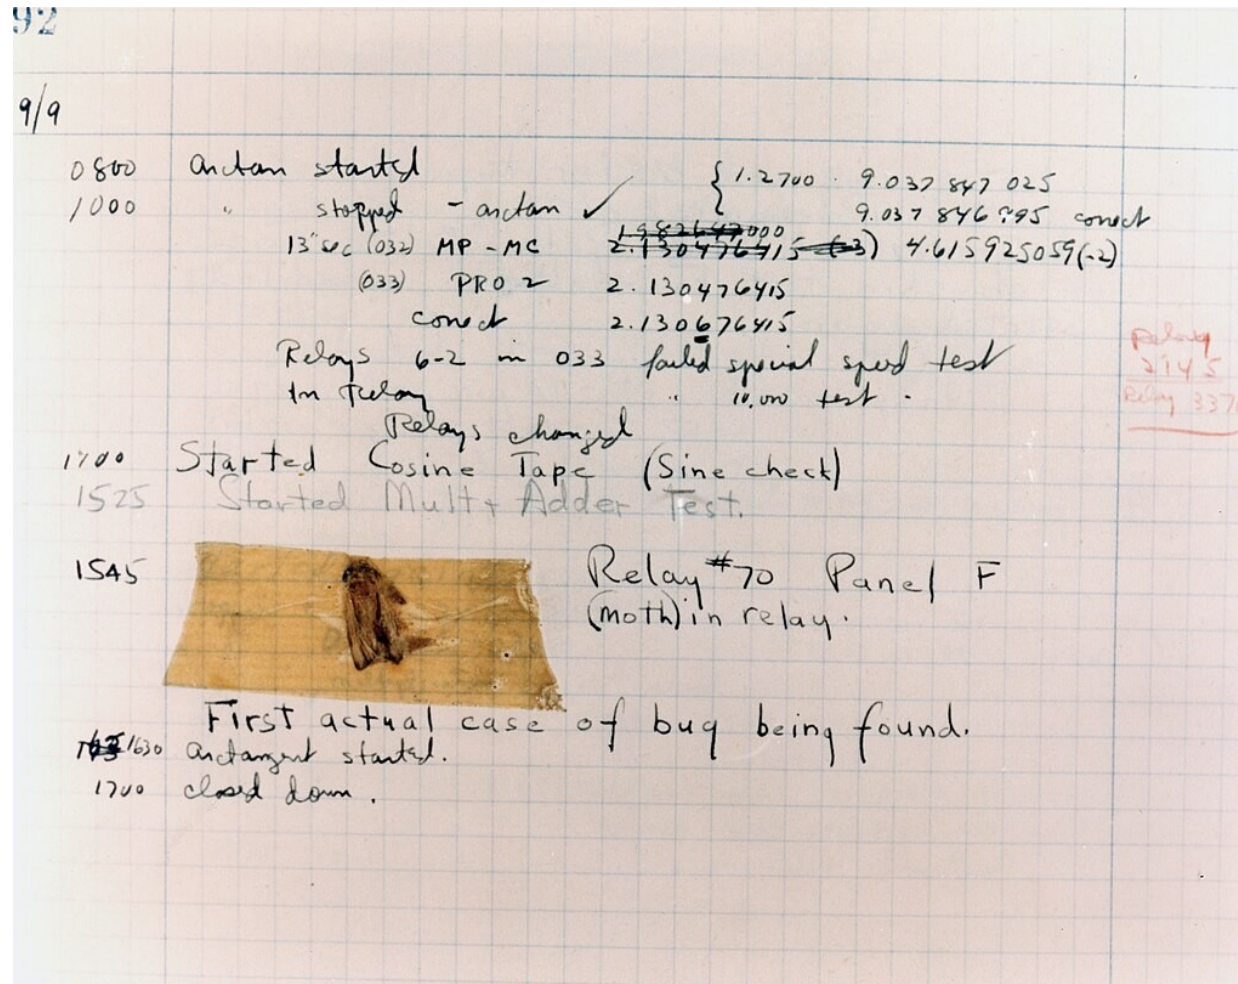 92
9/9
0800 arctan started { 1.2700 . 9.037 847 025
1000 " stopped - arctan ✓ 9.037 846 995 correct
000
13" sec (032) MP - MC (-3) 4.615925059(-2)
(033) PRO 2 2.130476415
correct 2.130676415
Relays 6-2 in 033 failed special speed test
In Relay " 10,000 test .
Relays changed
1700 Started Cosine Tape (Sine check)
1525 Started Mult + Adder Test.
1545 Relay #70 Panel F
(moth) in relay.
First actual case of bug being found.
1630 arctangent started.
1700 closed down .
Relay
2145
Relay 337